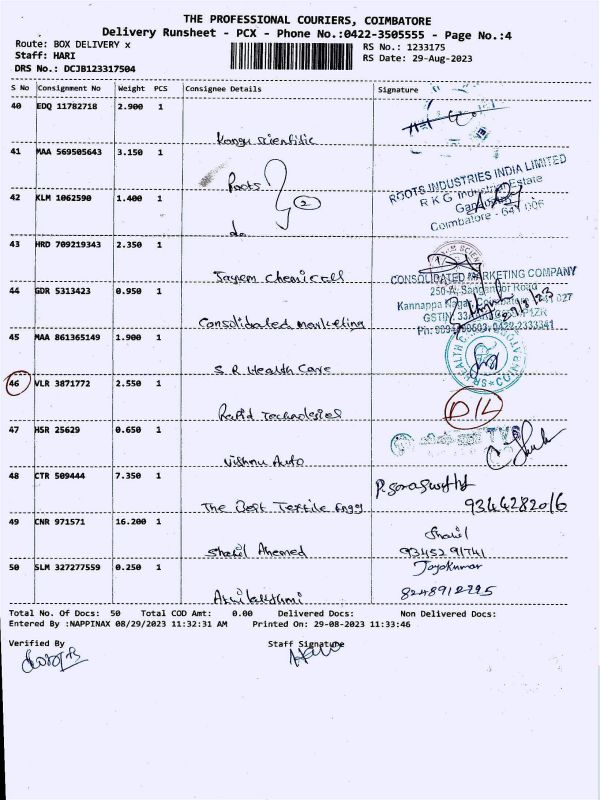 THE PROFESSIONAL COURIERS, COIMBATORE
Delivery Runsheet - PCX - Phone No.:0422-3505555 - Page No.:4
Route: BOX DELIVERY x
RS No.: 1233175
Staff: HARI
RS Date: 29-Aug-2023
DRS No.: DCJB123317504
S No Consignment No Weight PCS Consignee Details Signature
40 EDQ 11782718 2.900 1
Kongu Scientific
41 MAA 569505643 3.150 1
Roots
ROOTS INDUSTRIES INDIA LIMITED
R K G Industrial Estate
42 KLM 1062590 1.400 1
2
Coimbatore - 641 006
do
43 HRD 709219343 2.350 1
Jayem Chemicals
CONSOLIDATED MARKETING COMPANY
44 GDR 5313423 0.950 1
Kannappa Nagar, Coimbatore
29/8/23
Consolidated marketing
45 MAA 861365149 1.900 1
S R Health Care
46 VLR 3871772 2.550 1
D/L
Rapid Technologies
47 HSR 25629 0.650 1
TVS
Vishnu Auto
48 CTR 509444 7.350 1
9344282016
The Best Textile Engg
49 CNR 971571 16.200 1
9345291741
Sharil Ahemed
50 SLM 327277559 0.250 1
Jayakumar
8248912295
Total No. Of Docs: 50 Total COD Amt: 0.00 Delivered Docs: Non Delivered Docs:
Entered By :NAPPINAX 08/29/2023 11:32:31 AM Printed On: 29-08-2023 11:33:46
Verified By Staff Signature